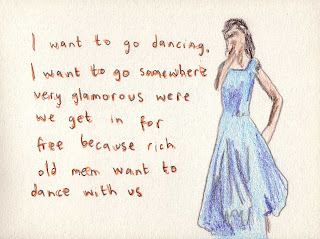 I want to go dancing.
I want to go somewhere
very glamorous were
we get in for
free because rich
old meen want to
dance with us